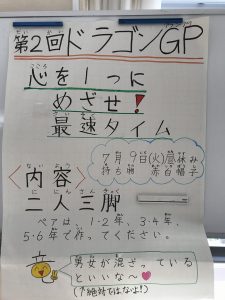 第2回ドラゴンGP
心を1つに
めざせ!
最速タイム
7月9日(火)昼休み
持ち物 赤白帽子
〈内容〉
二人三脚
ペアは、1・2年、3・4年、
5・6年で作ってください。
男女が混ざっている
といいな〜♥
(↑絶対ではないよ!)